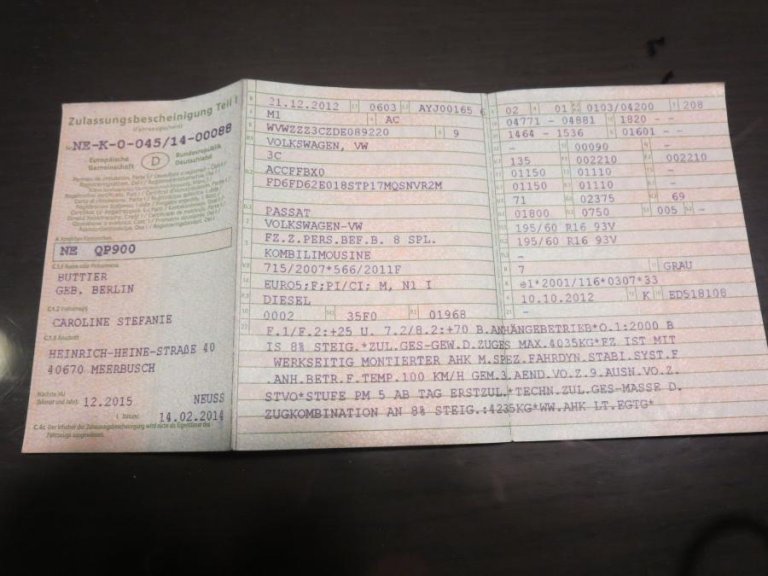 Zulassungsbescheinigung Teil I
(Fahrzeugschein)
Nr. NE-K-0-045/14-00088
Europäische Gemeinschaft
D
Bundesrepublik Deutschland
NE QP900
BUTTIER
GEB. BERLIN
CAROLINE STEFANIE
HEINRICH-HEINE-STRAßE 40
40670 MEERBUSCH
12.2015 NEUSS
14.02.2014
21.12.2012 0603 AYJ00165 6
M1 AC
WVWZZZ3CZDE089220 9
VOLKSWAGEN, VW
3C
ACCFFBX0
FD6FD62E018STP17MQSNVR2M
PASSAT
VOLKSWAGEN-VW
FZ.Z.PERS.BEF.B. 8 SPL.
KOMBILIMOUSINE
715/2007*566/2011F
EURO5;F;PI/CI; M, N1 I
DIESEL
0002 35F0 01968
02 01 0103/04200 208
04771 - 04881 1820 - -
1464 - 1536 01601 - -
- 00090 -
135 002210 002210
01150 01110 -
01150 01110 -
71 02375 69
01800 0750 005 -
195/60 R16 93V
195/60 R16 93V
-
7 GRAU
e1*2001/116*0307*33
10.10.2012 K ED518108
F.1/F.2:+25 U. 7.2/8.2:+70 B.ANHÄNGEBETRIEB*O.1:2000 B
IS 8% STEIG.*ZUL.GES-GEW.D.ZUGES MAX.4035KG*FZ IST MIT
WERKSEITIG MONTIERTER AHK M.SPEZ.FAHRDYN.STABI.SYST.F
.ANH.BETR.F.TEMP.100 KM/H GEM.3.AEND.VO.Z.9.AUSN.VO.Z.
STVO*STUFE PM 5 AB TAG ERSTZUL*TECHN.ZUL.GES-MASSE D.
ZUGKOMBINATION AN 8% STEIG.:4235KG*WW.AHK LT.EGTG*